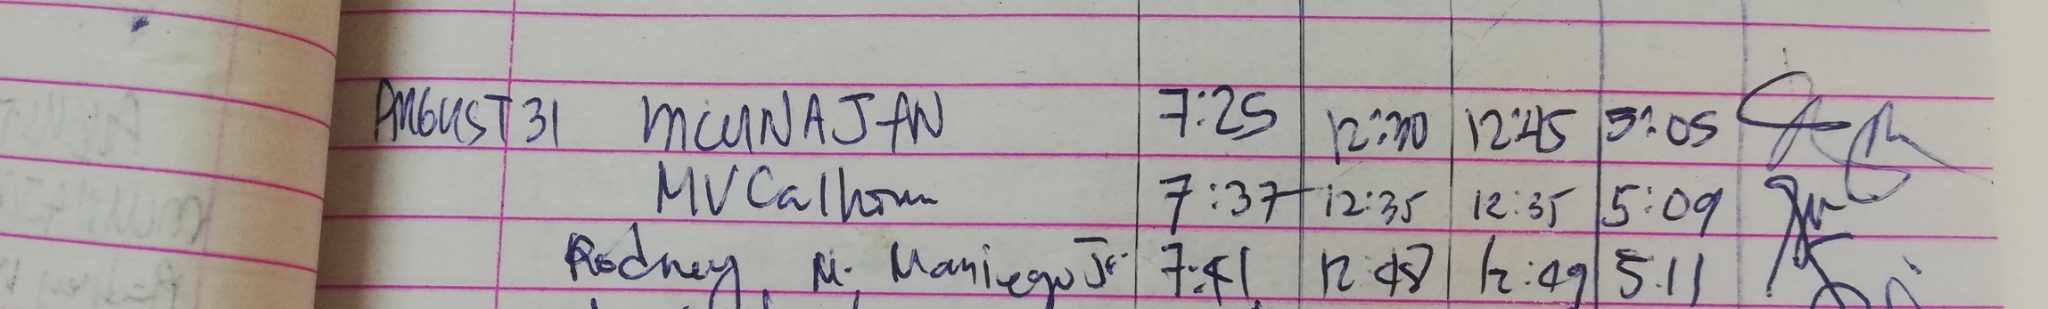 AUGUST 31 MCUNAJAN 7:25 12:30 12:45 5:05
MV Calhoun 7:37 12:35 12:35 5:09
Rodney N. Maniego Jr. 7:41 12:48 12:49 5:11